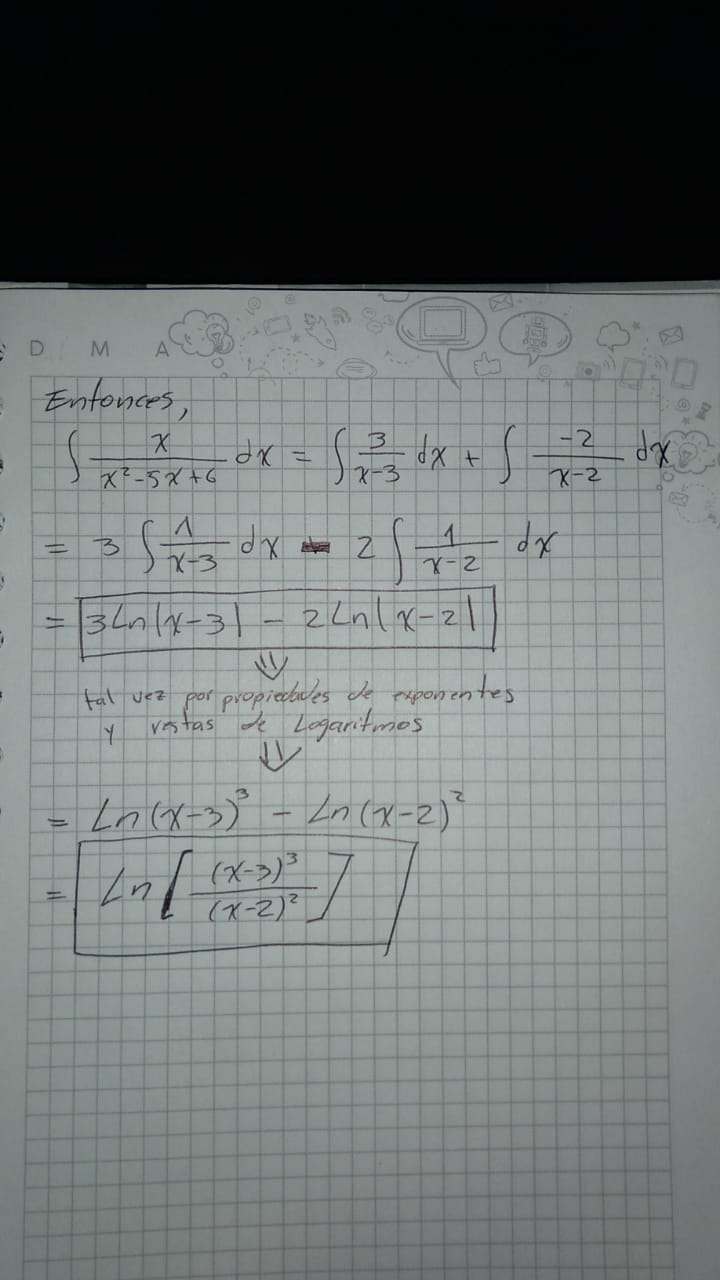 D M A
Entonces,
∫ x/(x²-5x+6) dx = ∫ 3/(x-3) dx + ∫ -2/(x-2) dx
= 3 ∫ 1/(x-3) dx - 2 ∫ 1/(x-2) dx
= 3Ln|x-3| - 2Ln|x-2|
tal vez por propiedades de exponentes
y restas de Logaritmos
= Ln(x-3)³ - Ln(x-2)²
= Ln[(x-3)³/(x-2)²]